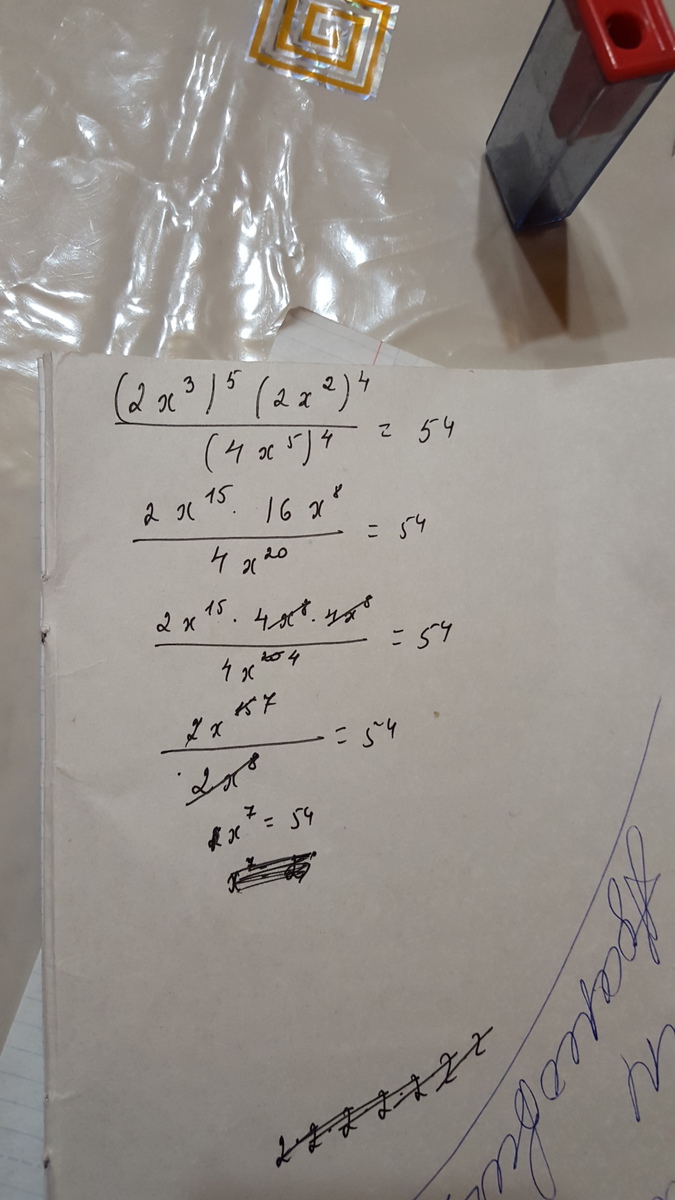 (2x³)⁵ (2x²)⁴ / (4x⁵)⁴ = 54
2x¹⁵ · 16x⁸ / 4x²⁰ = 54
2x¹⁵ · 4x⁸ · 4x⁸ / 4x²⁰ ⁴ = 54
2x¹⁵ ⁷ / 2x⁸ = 54
x⁷ = 54
2·2·2·2·2·2·2